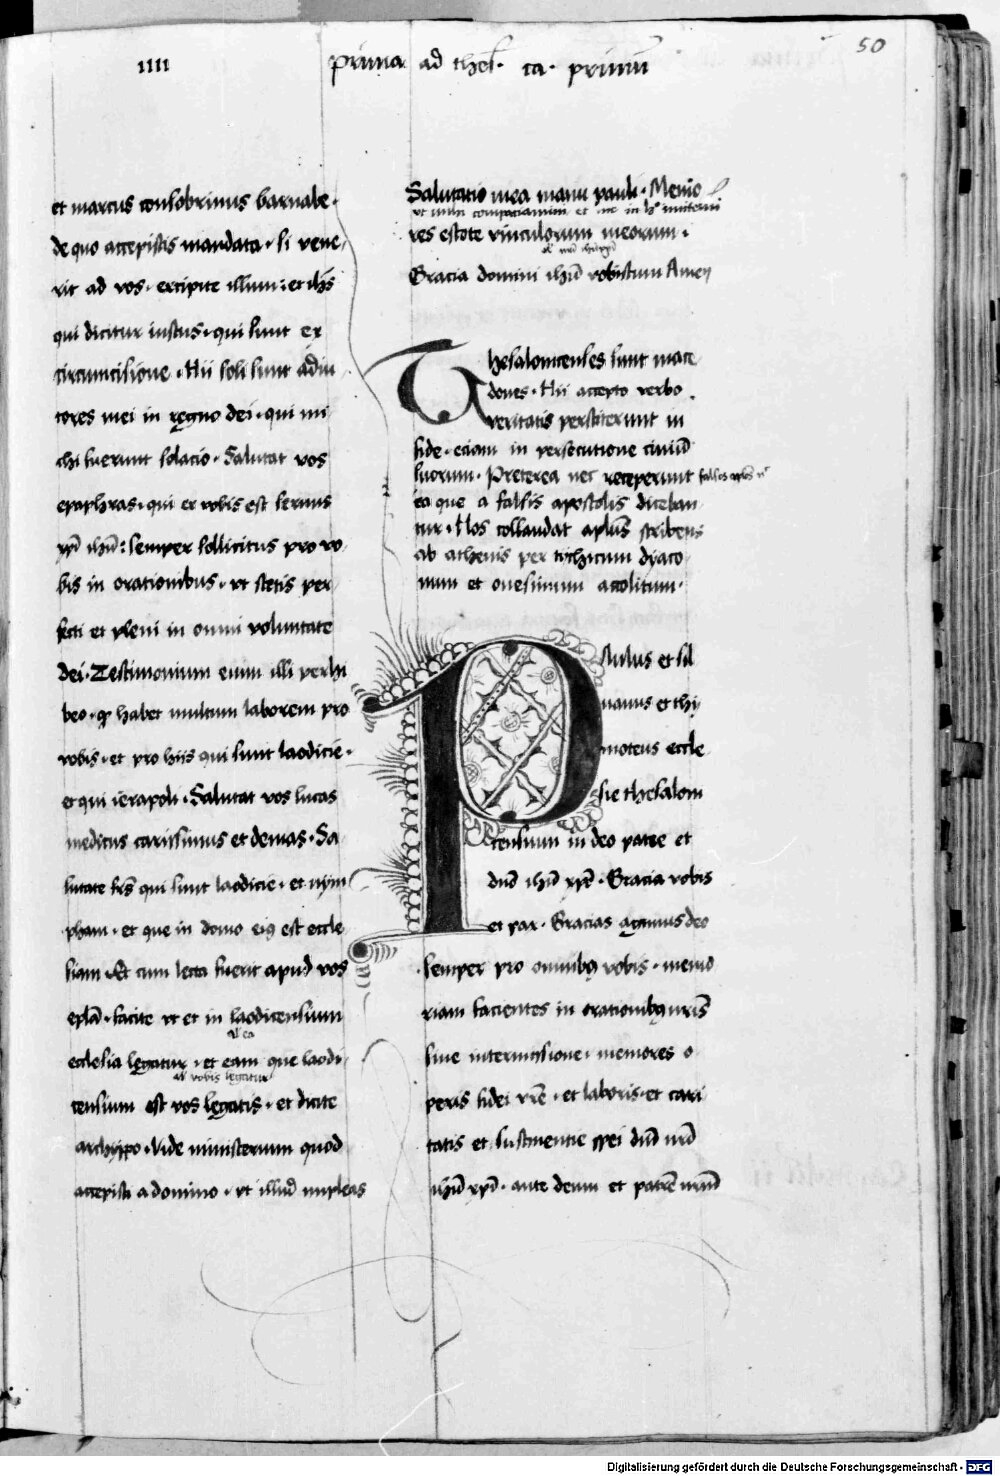 50
IIII prima ad thes. ca. primū
et marcus consobrinus barnabe.
de quo accepistis mandata. si vene
rit ad vos. excipite illum. et ihs
qui dicitur iustus. qui sunt ex
circumcisione. Hii soli sunt adiu
tores mei in regno dei. qui mi
chi fuerunt solacio. Salutat vos
epaphras. qui ex vobis est servus
xpi ihū: semper sollicitus pro vo
bis in orationibus. vt stetis per
fecti et pleni in omni voluntate
dei. Testimonium enim illi perhi
beo. q habet multum laborem pro
vobis. et pro hiis qui sunt laodicie.
et qui ierapoli. Salutat vos lucas
medicus carissimus et demas. Sa
lutate frs qui sunt laodicie. et nym
pham. et que in domo eiꝯ est eccle
siam. Et cum lecta fuerit apud vos
eplā. facite vt et in laodicensium
al ea
ecclesia legatur. et eam que laodi
al vobis legatur
censium est vos legatis. et dicite
archippo. vide ministerium quod
accepisti a domino. vt illud impleas
Salutatio mea manu pauli. Memo
res estote vinculorum meorum.
Gracia domini ihū vobiscum Amen
Thesalonicenses sunt mace
dones. Hii accepto verbo
veritatis perstiterunt in
fide. eciam in persecutione civiū
suorum. Preterea nec receperunt
ea que a falsis apostolis diceban
tur. Hos collaudat aplūs scribens
ab athenis per tithicum dyaco
num et onesimum accolitum.
Paulus et sil
uanus et thy
moteus eccle
sie thesaloni
censium in deo patre et
dn̄o ihū xpō. Gracia vobis
et pax. Gracias agimus deo
semper pro omnibꝯ vobis. memo
riam facientes in orationibꝯ vr̄is
sine intermissione. memores o
peris fidei vr̄e. et laboris. et cari
tatis et sustinentie spei dn̄i nr̄i
ihū xpī. ante deum et patrē nr̄m
Digitalisierung gefördert durch die Deutsche Forschungsgemeinschaft - DFG